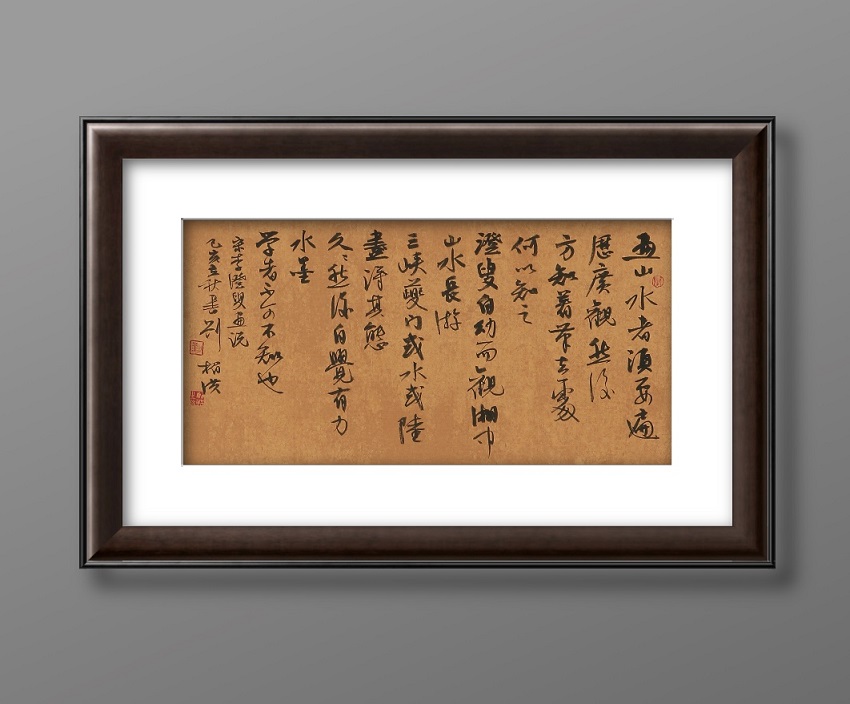 画山水者須要遍
歷廣觀然後
方知著筆去處
何以知之
澄叟自幼而觀湘中
山水長游
三峽夔門或水或陸
盡得其態
久久然後自覺有力
水墨
学者不可不知也
宋李澄叟画说
乙亥立秋書刘